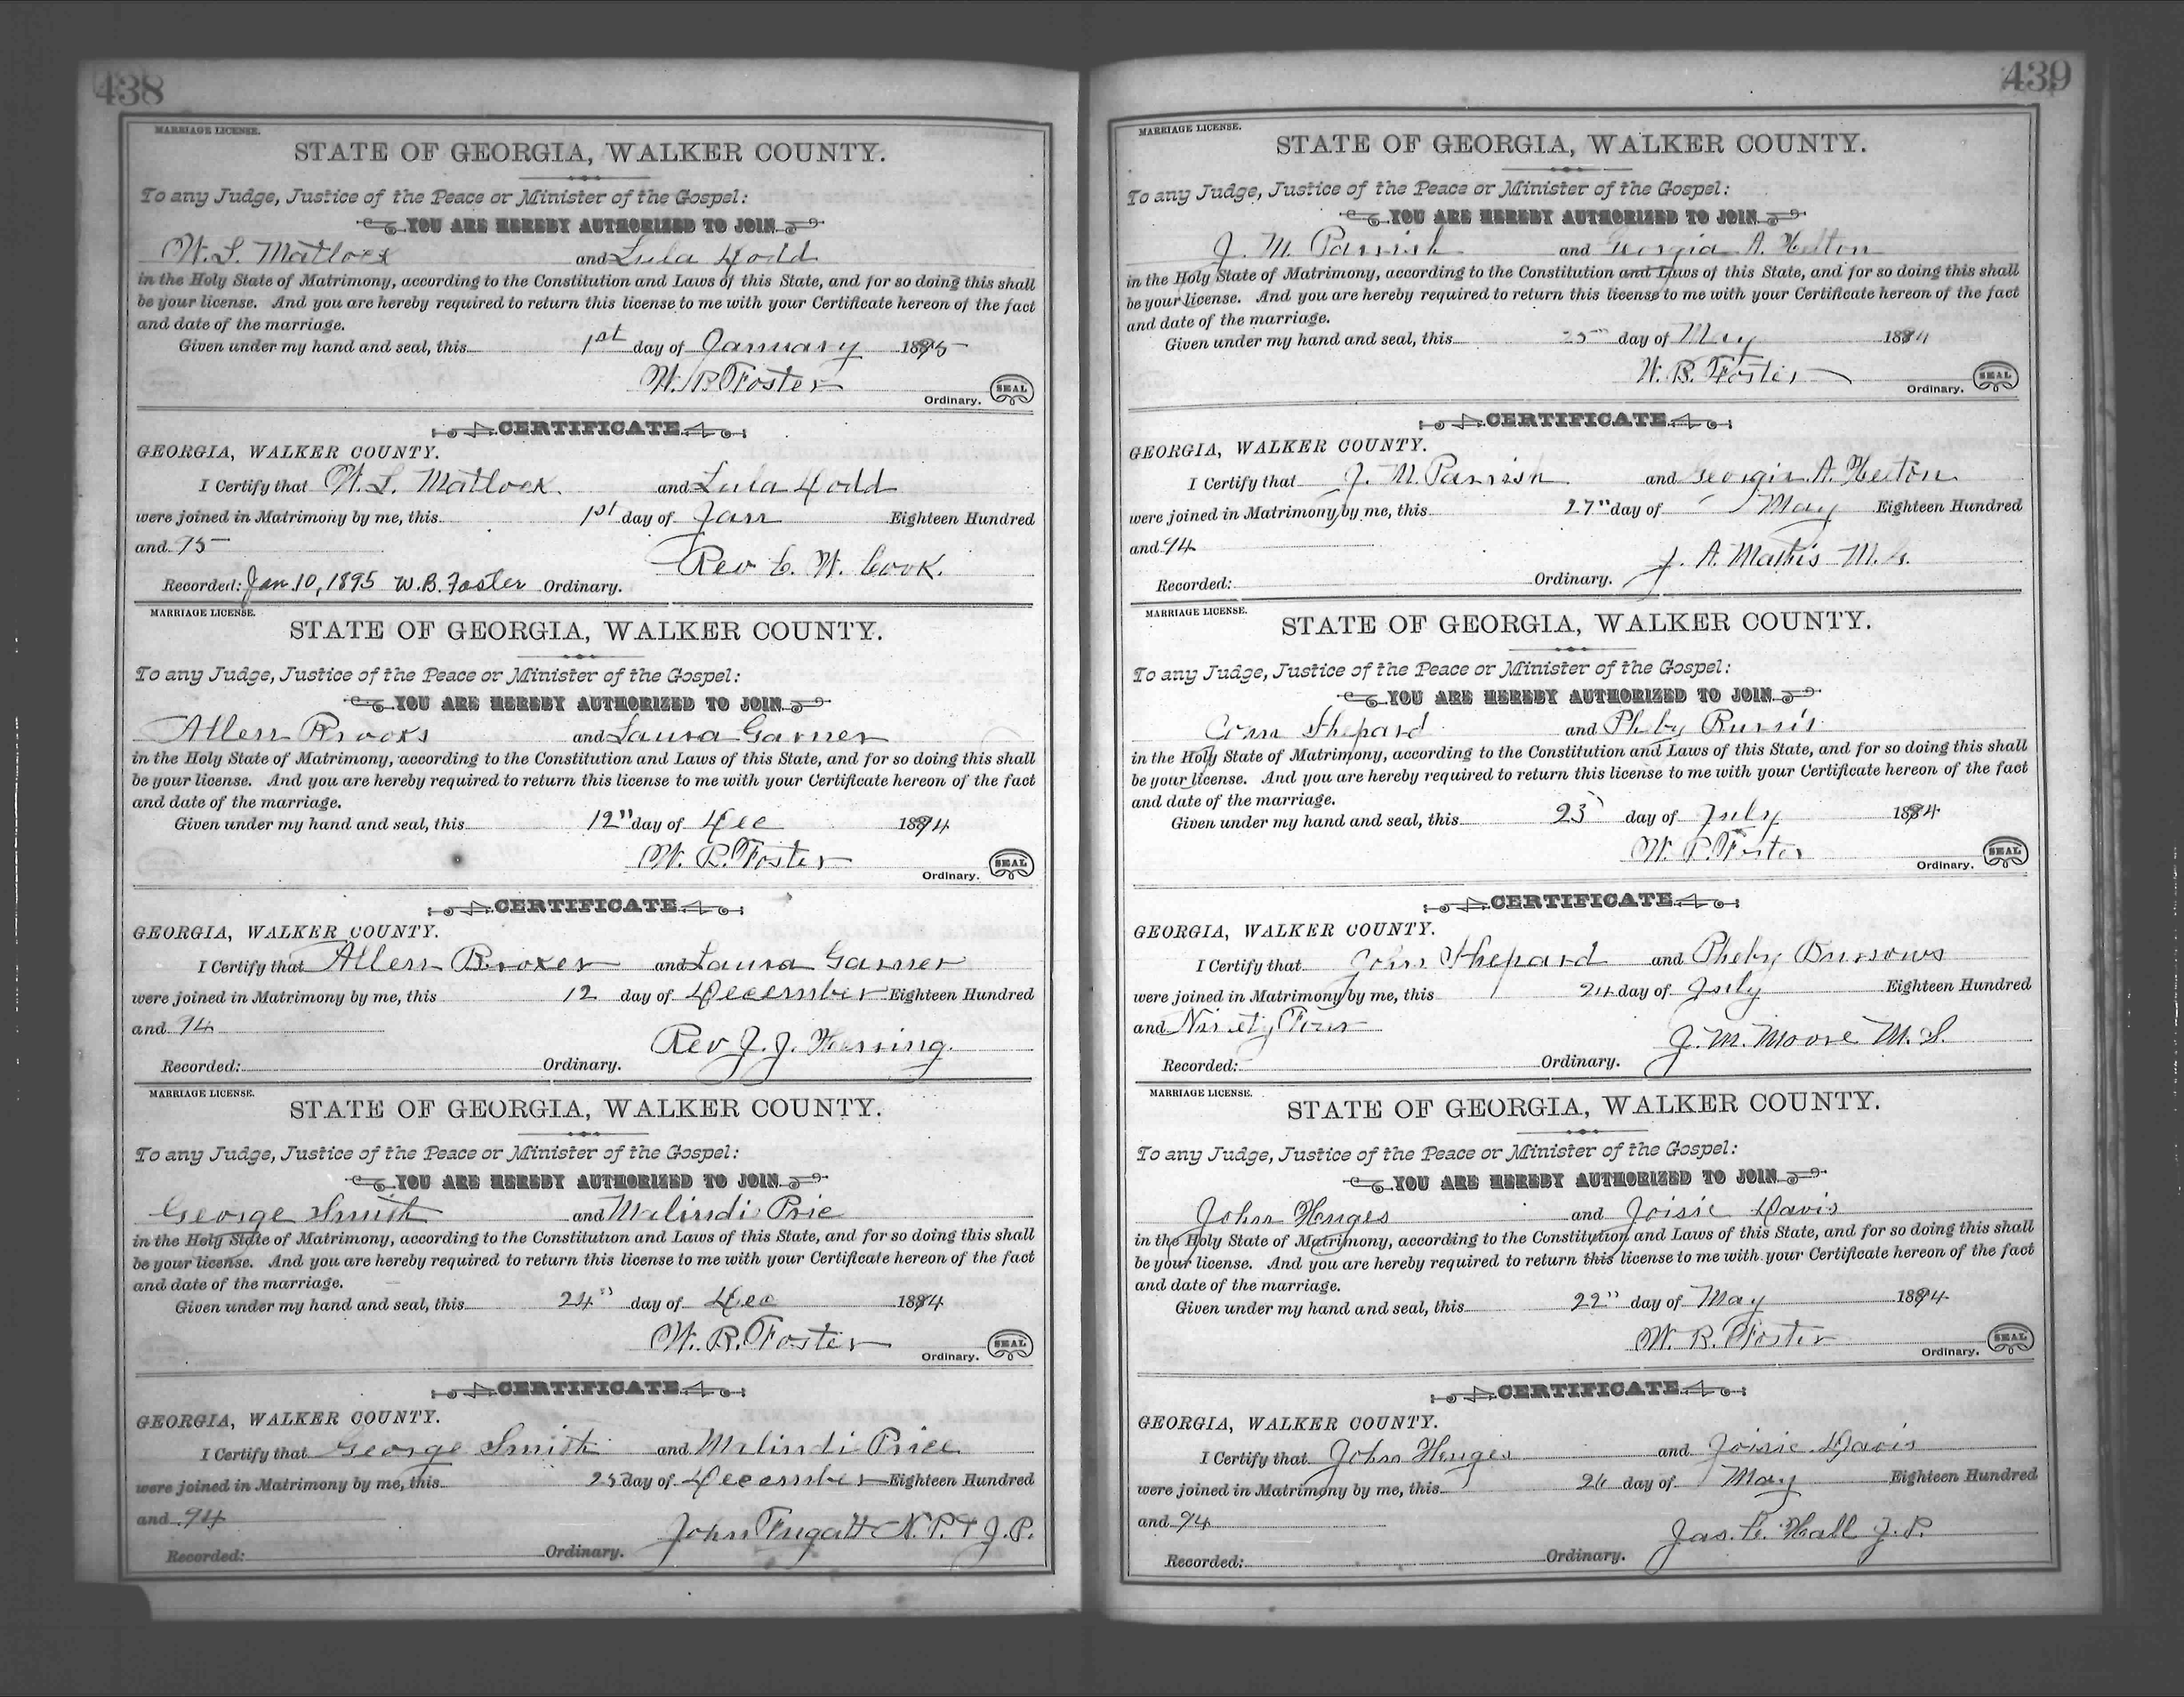 438
MARRIAGE LICENSE.
STATE OF GEORGIA, WALKER COUNTY.
To any Judge, Justice of the Peace or Minister of the Gospel:
YOU ARE HEREBY AUTHORIZED TO JOIN
W. L. Matlock and Lula Dodd
in the Holy State of Matrimony, according to the Constitution and Laws of this State, and for so doing this shall
be your license. And you are hereby required to return this license to me with your Certificate hereon of the fact
and date of the marriage.
Given under my hand and seal, this 1st day of January 1895
W. B. Foster
Ordinary. SEAL
CERTIFICATE
GEORGIA, WALKER COUNTY.
I Certify that W. L. Matlock and Lula Dodd
were joined in Matrimony by me, this 1st day of Jan Eighteen Hundred
and 95
Rev C. W. Cook.
Recorded: Jan. 10, 1895 W. B. Foster Ordinary.
MARRIAGE LICENSE.
STATE OF GEORGIA, WALKER COUNTY.
To any Judge, Justice of the Peace or Minister of the Gospel:
YOU ARE HEREBY AUTHORIZED TO JOIN
Allen Brooks and Laura Garner
in the Holy State of Matrimony, according to the Constitution and Laws of this State, and for so doing this shall
be your license. And you are hereby required to return this license to me with your Certificate hereon of the fact
and date of the marriage.
Given under my hand and seal, this 12" day of Dec 1894
W. B. Foster
Ordinary. SEAL
CERTIFICATE
GEORGIA, WALKER COUNTY.
I Certify that Allen and Laura Garner
were joined in Matrimony by me, this 12 day of December Eighteen Hundred
and 94
Rev J. J.
Recorded: Ordinary.
MARRIAGE LICENSE.
STATE OF GEORGIA, WALKER COUNTY.
To any Judge, Justice of the Peace or Minister of the Gospel:
YOU ARE HEREBY AUTHORIZED TO JOIN
George Smith and Malindi Prie
in the Holy State of Matrimony, according to the Constitution and Laws of this State, and for so doing this shall
be your license. And you are hereby required to return this license to me with your Certificate hereon of the fact
and date of the marriage.
Given under my hand and seal, this 24" day of Dec 1894
W. B. Foster
Ordinary. SEAL
CERTIFICATE
GEORGIA, WALKER COUNTY.
I Certify that George Smith and Malindi Price
were joined in Matrimony by me, this 25 day of December Eighteen Hundred
and 94
John Fugatt N. P. & J. P.
Recorded: Ordinary.
439
MARRIAGE LICENSE.
STATE OF GEORGIA, WALKER COUNTY.
To any Judge, Justice of the Peace or Minister of the Gospel:
YOU ARE HEREBY AUTHORIZED TO JOIN
J. M. Parrish and Georgia A.
in the Holy State of Matrimony, according to the Constitution and Laws of this State, and for so doing this shall
be your license. And you are hereby required to return this license to me with your Certificate hereon of the fact
and date of the marriage.
Given under my hand and seal, this 25" day of May 1894
W. B. Foster
Ordinary. SEAL
CERTIFICATE
GEORGIA, WALKER COUNTY.
I Certify that J. M. Parrish and Georgia A.
were joined in Matrimony by me, this 27" day of May Eighteen Hundred
and 94
J. A. Mathis M. G.
Recorded: Ordinary.
MARRIAGE LICENSE.
STATE OF GEORGIA, WALKER COUNTY.
To any Judge, Justice of the Peace or Minister of the Gospel:
YOU ARE HEREBY AUTHORIZED TO JOIN
Shepard and Pheby Burris
in the Holy State of Matrimony, according to the Constitution and Laws of this State, and for so doing this shall
be your license. And you are hereby required to return this license to me with your Certificate hereon of the fact
and date of the marriage.
Given under my hand and seal, this 23 day of July 1894
W. B. Foster
Ordinary. SEAL
CERTIFICATE
GEORGIA, WALKER COUNTY.
I Certify that John Shepard and Pheby Burrows
were joined in Matrimony by me, this 24 day of July Eighteen Hundred
and Ninety Four
J. M. Moore M. G.
Recorded: Ordinary.
MARRIAGE LICENSE.
STATE OF GEORGIA, WALKER COUNTY.
To any Judge, Justice of the Peace or Minister of the Gospel:
YOU ARE HEREBY AUTHORIZED TO JOIN
John Henges and Joisie Davis
in the Holy State of Matrimony, according to the Constitution and Laws of this State, and for so doing this shall
be your license. And you are hereby required to return this license to me with your Certificate hereon of the fact
and date of the marriage.
Given under my hand and seal, this 22" day of May 1894
W. B. Foster
Ordinary. SEAL
CERTIFICATE
GEORGIA, WALKER COUNTY.
I Certify that John Henges and Joisie Davis
were joined in Matrimony by me, this 24 day of May Eighteen Hundred
and 94
Jas. C. Hall J. P.
Recorded: Ordinary.